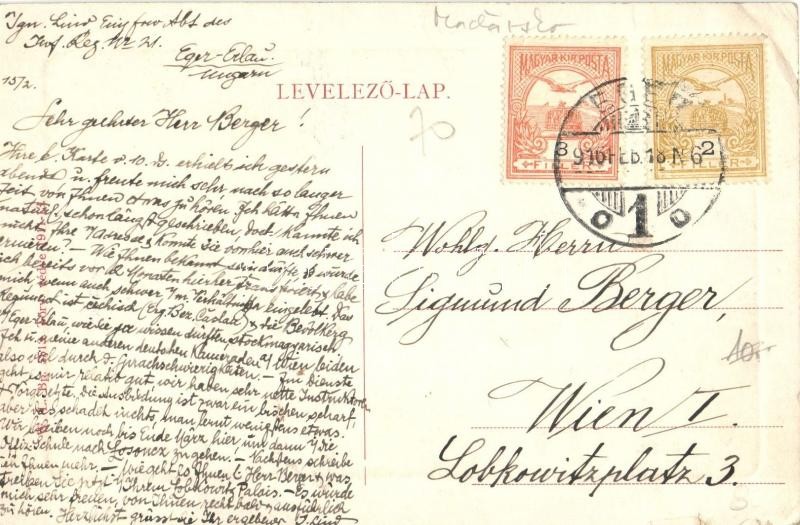 Ign. Lind Einj frw Abt des
Inf. Reg. Nr 21.
Eger-Erlau.
Ungarn
15/2.
LEVELEZŐ-LAP.
70
MAGYAR KIR. POSTA
MAGYAR KIR. POSTA
3 FILLÉR
2 FILLÉR
EGER
916 FEB. 16 N 6
1
Sehr geehrter Herr Berger!
Ihre l. Karte v. 10. d. erhielt ich gestern
abends u. freute mich sehr nach so langer
Zeit von Ihnen etwas zu hören. Ich hätte Ihnen
natürl. schon längst geschrieben, doch kannte ich
nicht Ihre Adresse & konnte sie von hier auch schwer
erruieren? — Wie Ihnen bekannt sein dürfte, wurde
ich bereits vor 2 Monaten hierher transferiert & habe
mich wenn auch schwer i/m. Verhältnisse eingelebt. Das
Regiment ist čechisch (Erg. Bez. Časlau) & die Bevölkerg
v/ Eger-Erlau, wie Sie ja wissen dürften, stockmagyarisch
Ich u. meine anderen deutschen Kameraden a/ Wien leiden
also viel durch d. Sprachschwierigkeiten. — Im Dienste
geht es mir relativ gut, wir haben sehr nette Instruktoren
& Vorgesetzte. Die Ausbildung ist zwar ein bischen scharf,
aber das schadet nichts, man lernt wenigstens etwas.
Wir bleiben noch bis Ende März hier und dann i/ die
Schule nach Losoncz zu gehen. — Nächstens schreibe
ich Ihnen mehr. — Wie geht es Ihnen l. Herr Berger & was
treiben Sie jetzt i/ Ihrem Lobkowitz Palais. — Es würde
mich sehr freuen, von Ihnen recht bald u. ausführlich
zu hören. Herzlichst grüsst Sie Ihr ergebener I. Lind
Wohlg. Herrn
Sigmund Berger,
Wien I.
Lobkowitzplatz 3.